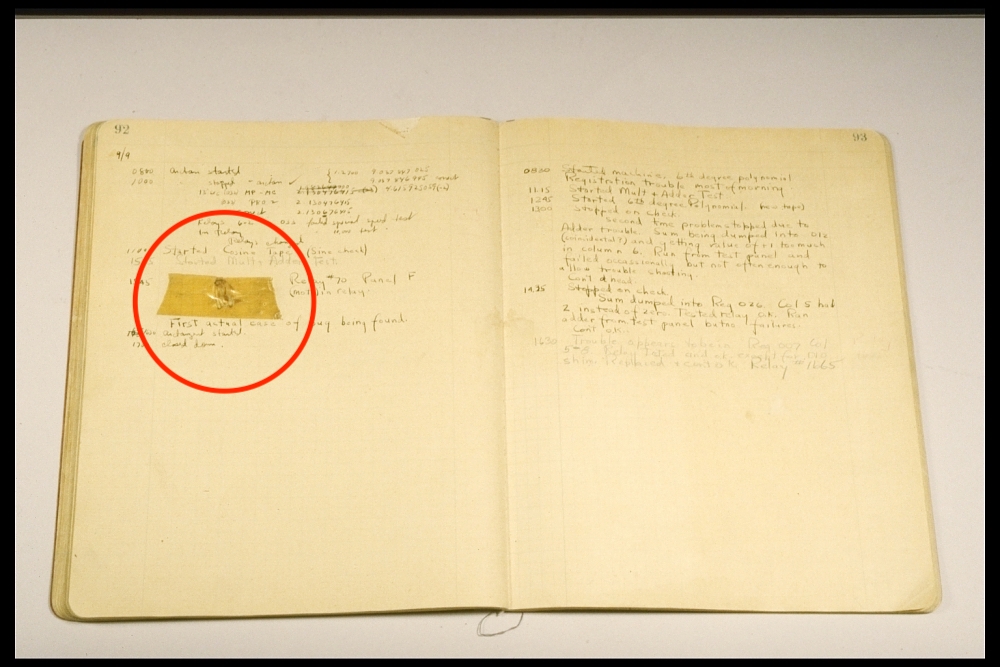 92
9/9
0800 Antan started
1000 " stopped - antan ✓
13" uc (032) MP - MC
033 PRO 2 2.130476415
Relays 6-2 in 033 failed special speed test
in relay
Relays changed
1100 Started Cosine Tape (Sine check)
1525 Started Mult + Adder Test.
1545 Relay #70 Panel F
(moth) in relay.
First actual case of bug being found.
antangent started.
1700 closed down.
93
0800 Started machine, 6th degree polynomial
Registration trouble most of morning
11.15 Started Mult + Adder Test
1245 Started 6th degree Polynomial. (two tapes)
1300 Stopped on check.
second time problem stopped due to
Adder trouble. Sum being dumped into 012
(coincidental?) and getting value of +1 too much
in column 6. Run from test panel and
failed occasionally but not often enough to
allow trouble shooting.
Cont'd
14.25 Stopped on check
Sum dumped into Reg 026. Col 5 had
2 instead of zero. Tested relay O.K. Run
adder from test panel but no failures.
Cont O.K.
1630 Trouble appears to be in Reg 007 Col
5 Relay tested and
Replaced + Cont O.K. Relay # 1665